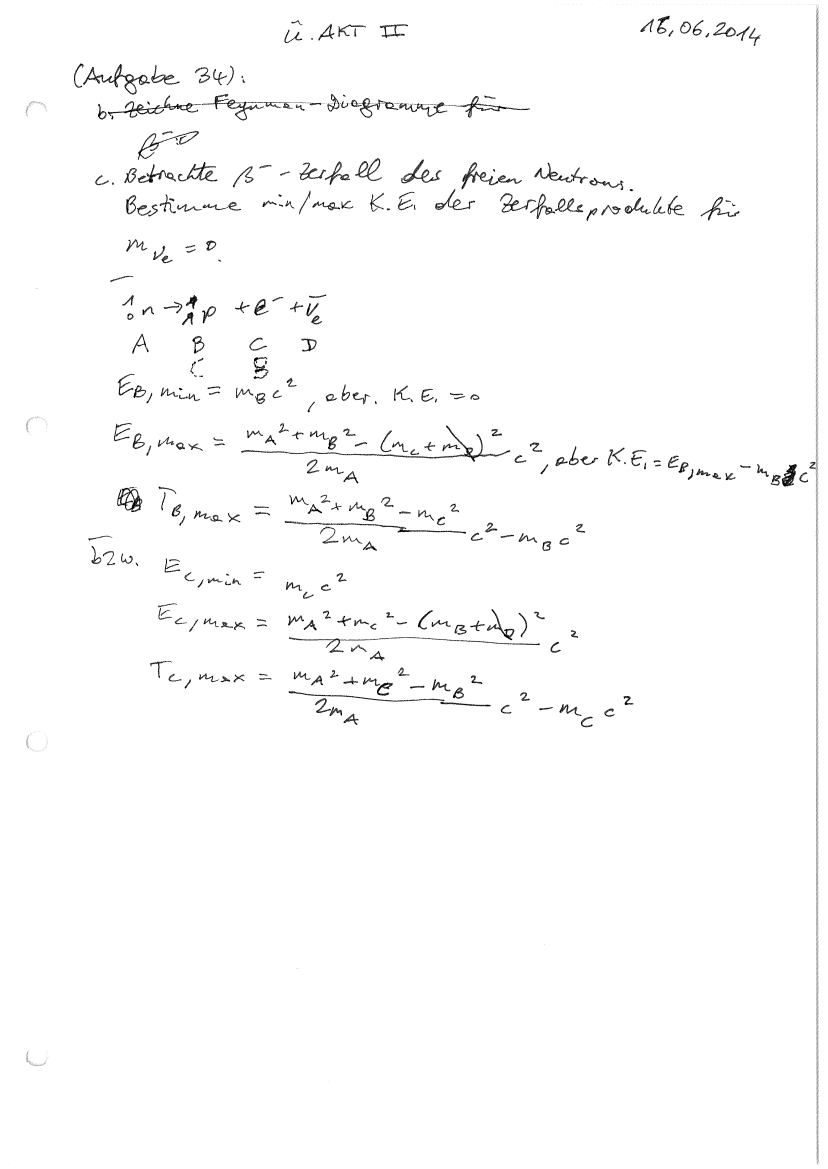 Ü. AKT II 16.06.2014
(Aufgabe 34):
b. Zeichne Feynman-Diagramme für
β⁻
c. Betrachte β⁻-Zerfall des freien Neutrons.
Bestimme min/max K.E. der Zerfallsprodukte für
m_νe = 0.
¹₀n → ¹₁p + e⁻ + ν̄_e
A B C D
C B
E_B,min = m_B c², aber. K.E. = 0
E_B,max = (m_A² + m_B² - (m_C + m_D)²) / (2m_A) c², aber K.E. = E_B,max - m_B c²
T_B,max = (m_A² + m_B² - m_C²) / (2m_A) c² - m_B c²
bzw. E_C,min = m_C c²
E_C,max = (m_A² + m_C² - (m_B + m_D)²) / (2m_A) c²
T_C,max = (m_A² + m_C² - m_B²) / (2m_A) c² - m_C c²